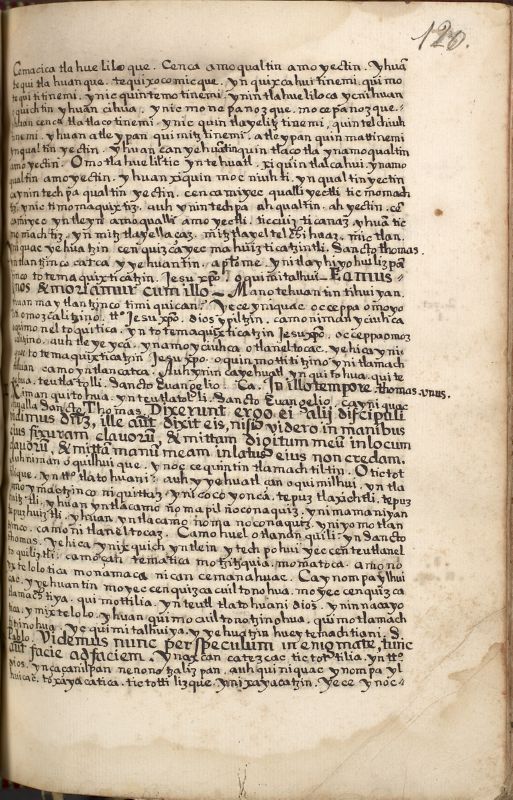 120.
Cemacica tlahueliloque. Cenca amo qualtin amo yectin. yhuā
tequitlahuanque. tequixocomicque. yn quixcahuitinemi. quimo
tequitinemi. ynic quintemotinemi. ynin tlahueliloca ycnihuan
yoquichtin yhuan cihua. ynic mone panozque. mocepanozque.
yhuan cenca tlatlacotinemi. ynic quintlayelitztinemi, quintelchiuh
tinemi. yhuan atleypan quimitztinemi, atleypan quinmattinemi
ynqualtin yectin. yhuan çan yehuātin quintlaçotla ynamo qualtin
amo yectin. Omo tlahueliltic yn tehuatl. xiquintlalcahui. ynamo
qualtin amo yectin. yhuan xiquinmocniuhti. yn qualtin yectin
ca yn intechpa qualtin yectin. cenca miyec qualli yectli tic momach
tiz. ynic timomaquixtiz. auh yn intechpa ah qualtin. ah yectin. cē
ca miyec yn tleyn amo qualli amo yectli. ticcuiz ticanaz. yhuā tic
momachtiz. yn mitztlayellaz. mitztlayeltechihaaz. mictlan.
yn iquac yehuatzin cenquizcayecmahuizticatzintli. Sancto thomas.
yntlantzinco catca yyehuantin. apłome. yn itlayhiyohuilizpā
tzinco totemaquixticatzin. Jesu xpō. oquimitalhui. Eamus
nos & moriamur cum illo. Manotehuantin tihuiyan.
yhuan maytlantzinco timiquican. Yece yniquac occeppa omoyo
lititzino mozcalitzino. tto Jesu xpō. dios ypiltzin. camo niman yciuhca
quimoneltoquitica. yn totemaquixticatzin Jesu xpō. occeppa omoz
calitzino. auh tleypa yeyca. ynamo yciuhca otlaneltocac. yehica ynic
totemaquixticatzin Jesu xpō. oquinmottititzino yn itlamach
tilhuan camo yntlan catca. Auh ynin ca yehuatl yn quitohua. quite
nehua. teutlatolli. Sancto Euangelio. Ca. In illo tempore. thomas. vnus.
Niman quitohua. yn teutlatolli. Sancto Euangelio. ca yn iquac
Sancto Thomas. Dixerunt ergo ei alij discipuli
vidimus dn̄z, ille aut̄ dixit eis, nisi videro in manibus
eius fixuram clauorū, & mittam digitum meū in locum
clauorū, & mittā manū meam in latus eius non credam.
Auh niman oquilhuique. ynoccequintin tlamachtiltin. Otictot
tilique. yn tto tlatohuani: auh yyehuatl çan oquimilhui. yn tla
camo ymactzinco niquittaz. ynicoco yoncā. tepuztlaxichtli. tepuz
huitztli. yhuan yntlacamo nomapil noconaquiz. yn imamaniyan
tepuzhuitztli. yhuan yntlacamo noma noconaquiz. yniyomotlan
tzinco. camo nitlaneltocaz. Camo huel otlananquili. yn Sancto
thomas. yehica ynixquich yntlein ytechpohui yeccenteutlanel
toquiliztli: camo çan tematica motzitzquia. momatoca. amo no
yxtelolotica monamaca nican cemanahuac. Ca yn ompa ylhui
cac. yyehuantin moyeccenquizcacuiltonohua. moyeccenquizca
tlamachtiya. quimottilia. yn teutl tlatohuani dios. ynin nacayo
tica. ymixtelolo. yhuan quimocuiltonotzinohua. quimotlamach
titzinohua. ye quimitalhuiya. yyehuatzin huey temachtiani. S.
Pablo. Videmus nunc per speculum in enigmate, tunc
aut facie ad faciem. yn axcan ca tezcac tictottilia. yn tto
dios. yn caçanilpan nenonotzalizpan. auh quiniquac ynompa yl
huicac. toxayacatica. tictottilizque. ynixayacatzin. yece ynoc